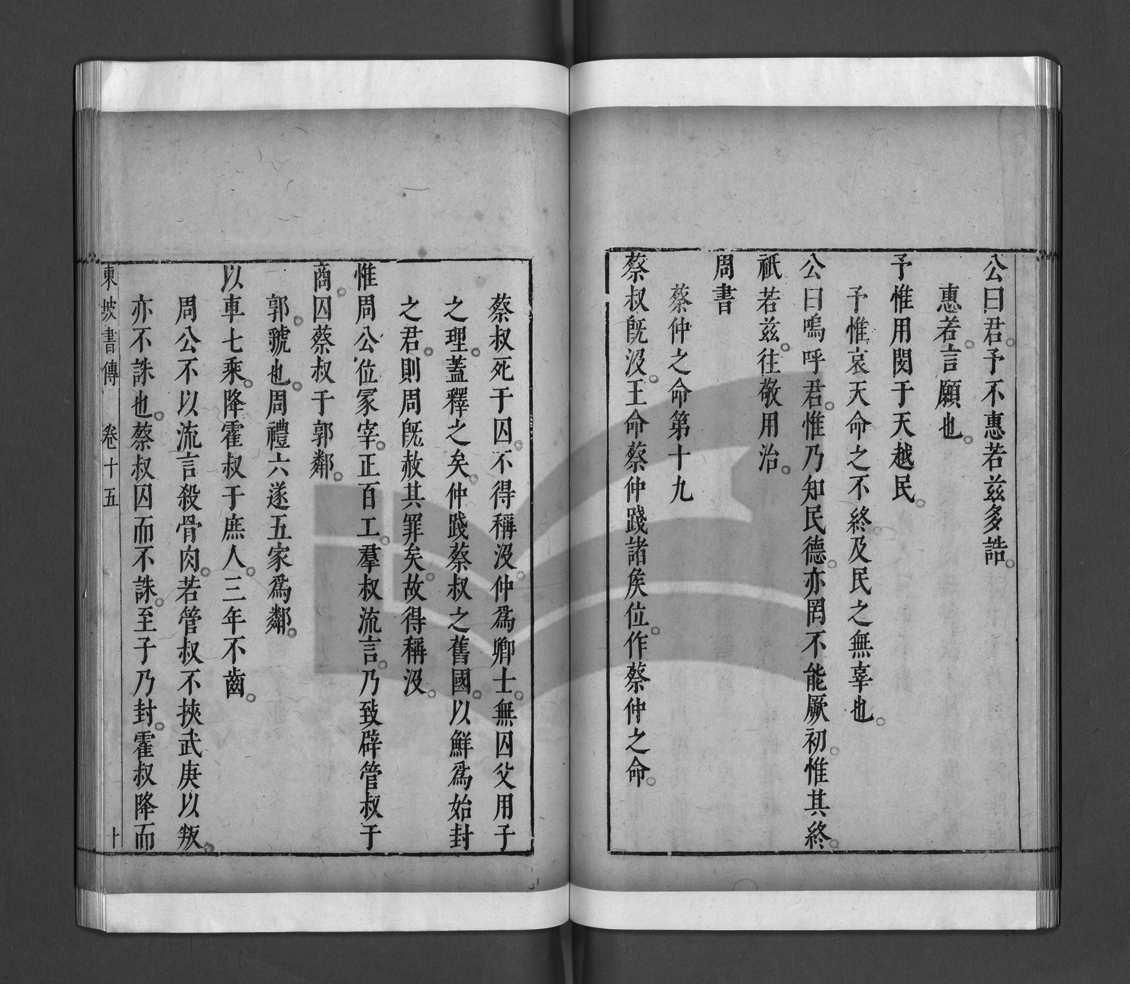 公曰君予不惠若茲多誥
惠若言願也
予惟用閔于天越民
予惟哀天命之不終及民之無辜也
公曰嗚呼君惟乃知民德亦罔不能厥初惟其終
祇若茲往敬用治
周書
蔡仲之命第十九
蔡叔旣沒王命蔡仲踐諸矦位作蔡仲之命
蔡叔死于囚不得稱沒仲爲卿士無囚父用子
之理蓋釋之矣仲踐蔡叔之舊國以鮮爲始封
之君則周旣赦其罪矣故得稱沒
惟周公位冢宰正百工羣叔流言乃致辟管叔于
商囚蔡叔于郭鄰
郭虢也周禮六遂五家爲鄰
以車七乘降霍叔于庶人三年不齒
周公不以流言殺骨肉若管叔不挾武庚以叛
亦不誅也蔡叔囚而不誅至子乃封霍叔降而
東坡書傳 卷十五 十